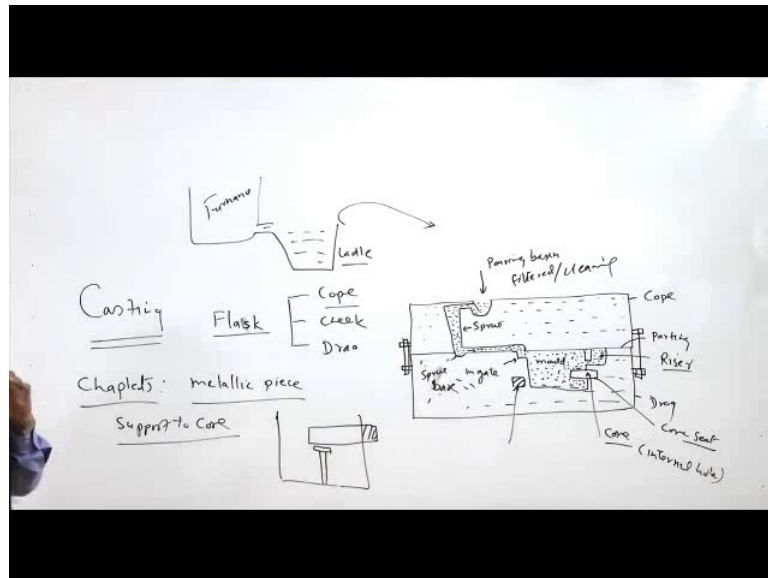 Furnance
Ladle
Casting
Flask
Cope
Cheek
Drag
Chaplets: metallic piece
Support to Core
Pouring basin
filtered/cleaning
Cope
Sprue
Parting
Riser
mould
Sprue
base
ingate
Drag
Core seat
Core (internal hole)